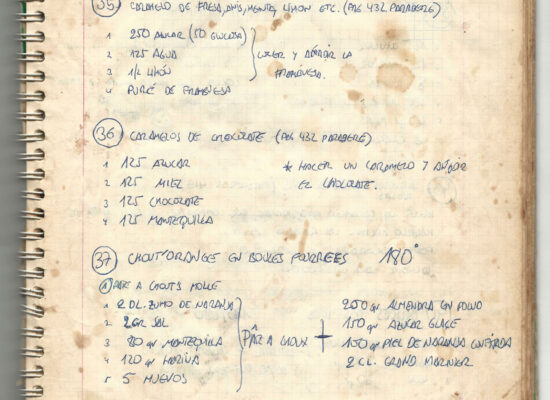 35 CARAMELO DE FRESA, ANIS, MENTA, LIMON ETC. (PAG 432 PARABERE)
1 250 AZUCAR (50 GLUCOSA)
2 125 AGUA
3 1/2 LIMÓN
4 PURÉ DE FRAMBUESA
COCER Y AÑADIR LA FRAMBUESA.
36 CARAMELOS DE CHOCOLATE (PAG 432 PARABERE)
1 125 AZUCAR
2 125 MIEL
3 125 CHOCOLATE
4 125 MANTEQUILLA
* HACER UN CARAMELO Y AÑADIR
EL CHOCOLATE.
37 CHOUX D'ORANGES EN BOULES FOURREES 180°
1 PATE A CHOUX MOLLE
1 2 DL. ZUMO DE NARANJA
2 2 GR SAL
3 80 gr MANTEQUILLA
4 120 gr HARINA
5 5 HUEVOS
PÂTE A CHOUX +
200 gr ALMENDRA EN POLVO
150 gr AZUCAR GLACE
150 gr PIEL DE NARANJA CONFITADA
2 CL. GRAND MARNIER